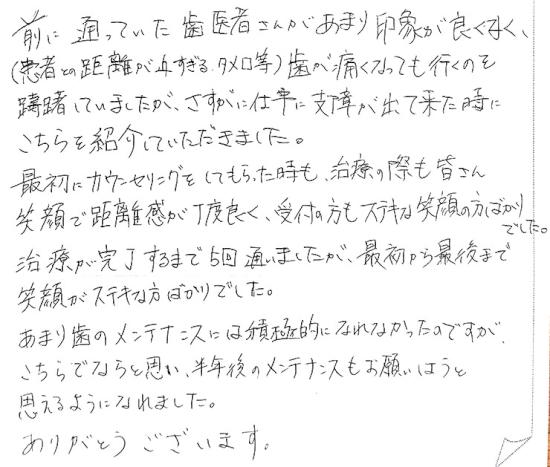 前に通っていた歯医者さんがあまり印象が良くなく、
(患者との距離が近すぎる、タメ口等)歯が痛くなっても行くのを
躊躇していましたが、さすがに仕事に支障が出て来た時に
こちらを紹介していただきました。
最初にカウンセリングをしてもらった時も、治療の際も皆さん
笑顔で距離感が丁度良く、受付の方もステキな笑顔の方ばかり
でした。
治療が完了するまで5回通いましたが、最初から最後まで
笑顔がステキな方ばかりでした。
あまり歯のメンテナンスには積極的になれなかったのですが、
こちらでならと思い、半年後のメンテナンスもお願いしようと
思えるようになれました。
ありがとうございます。